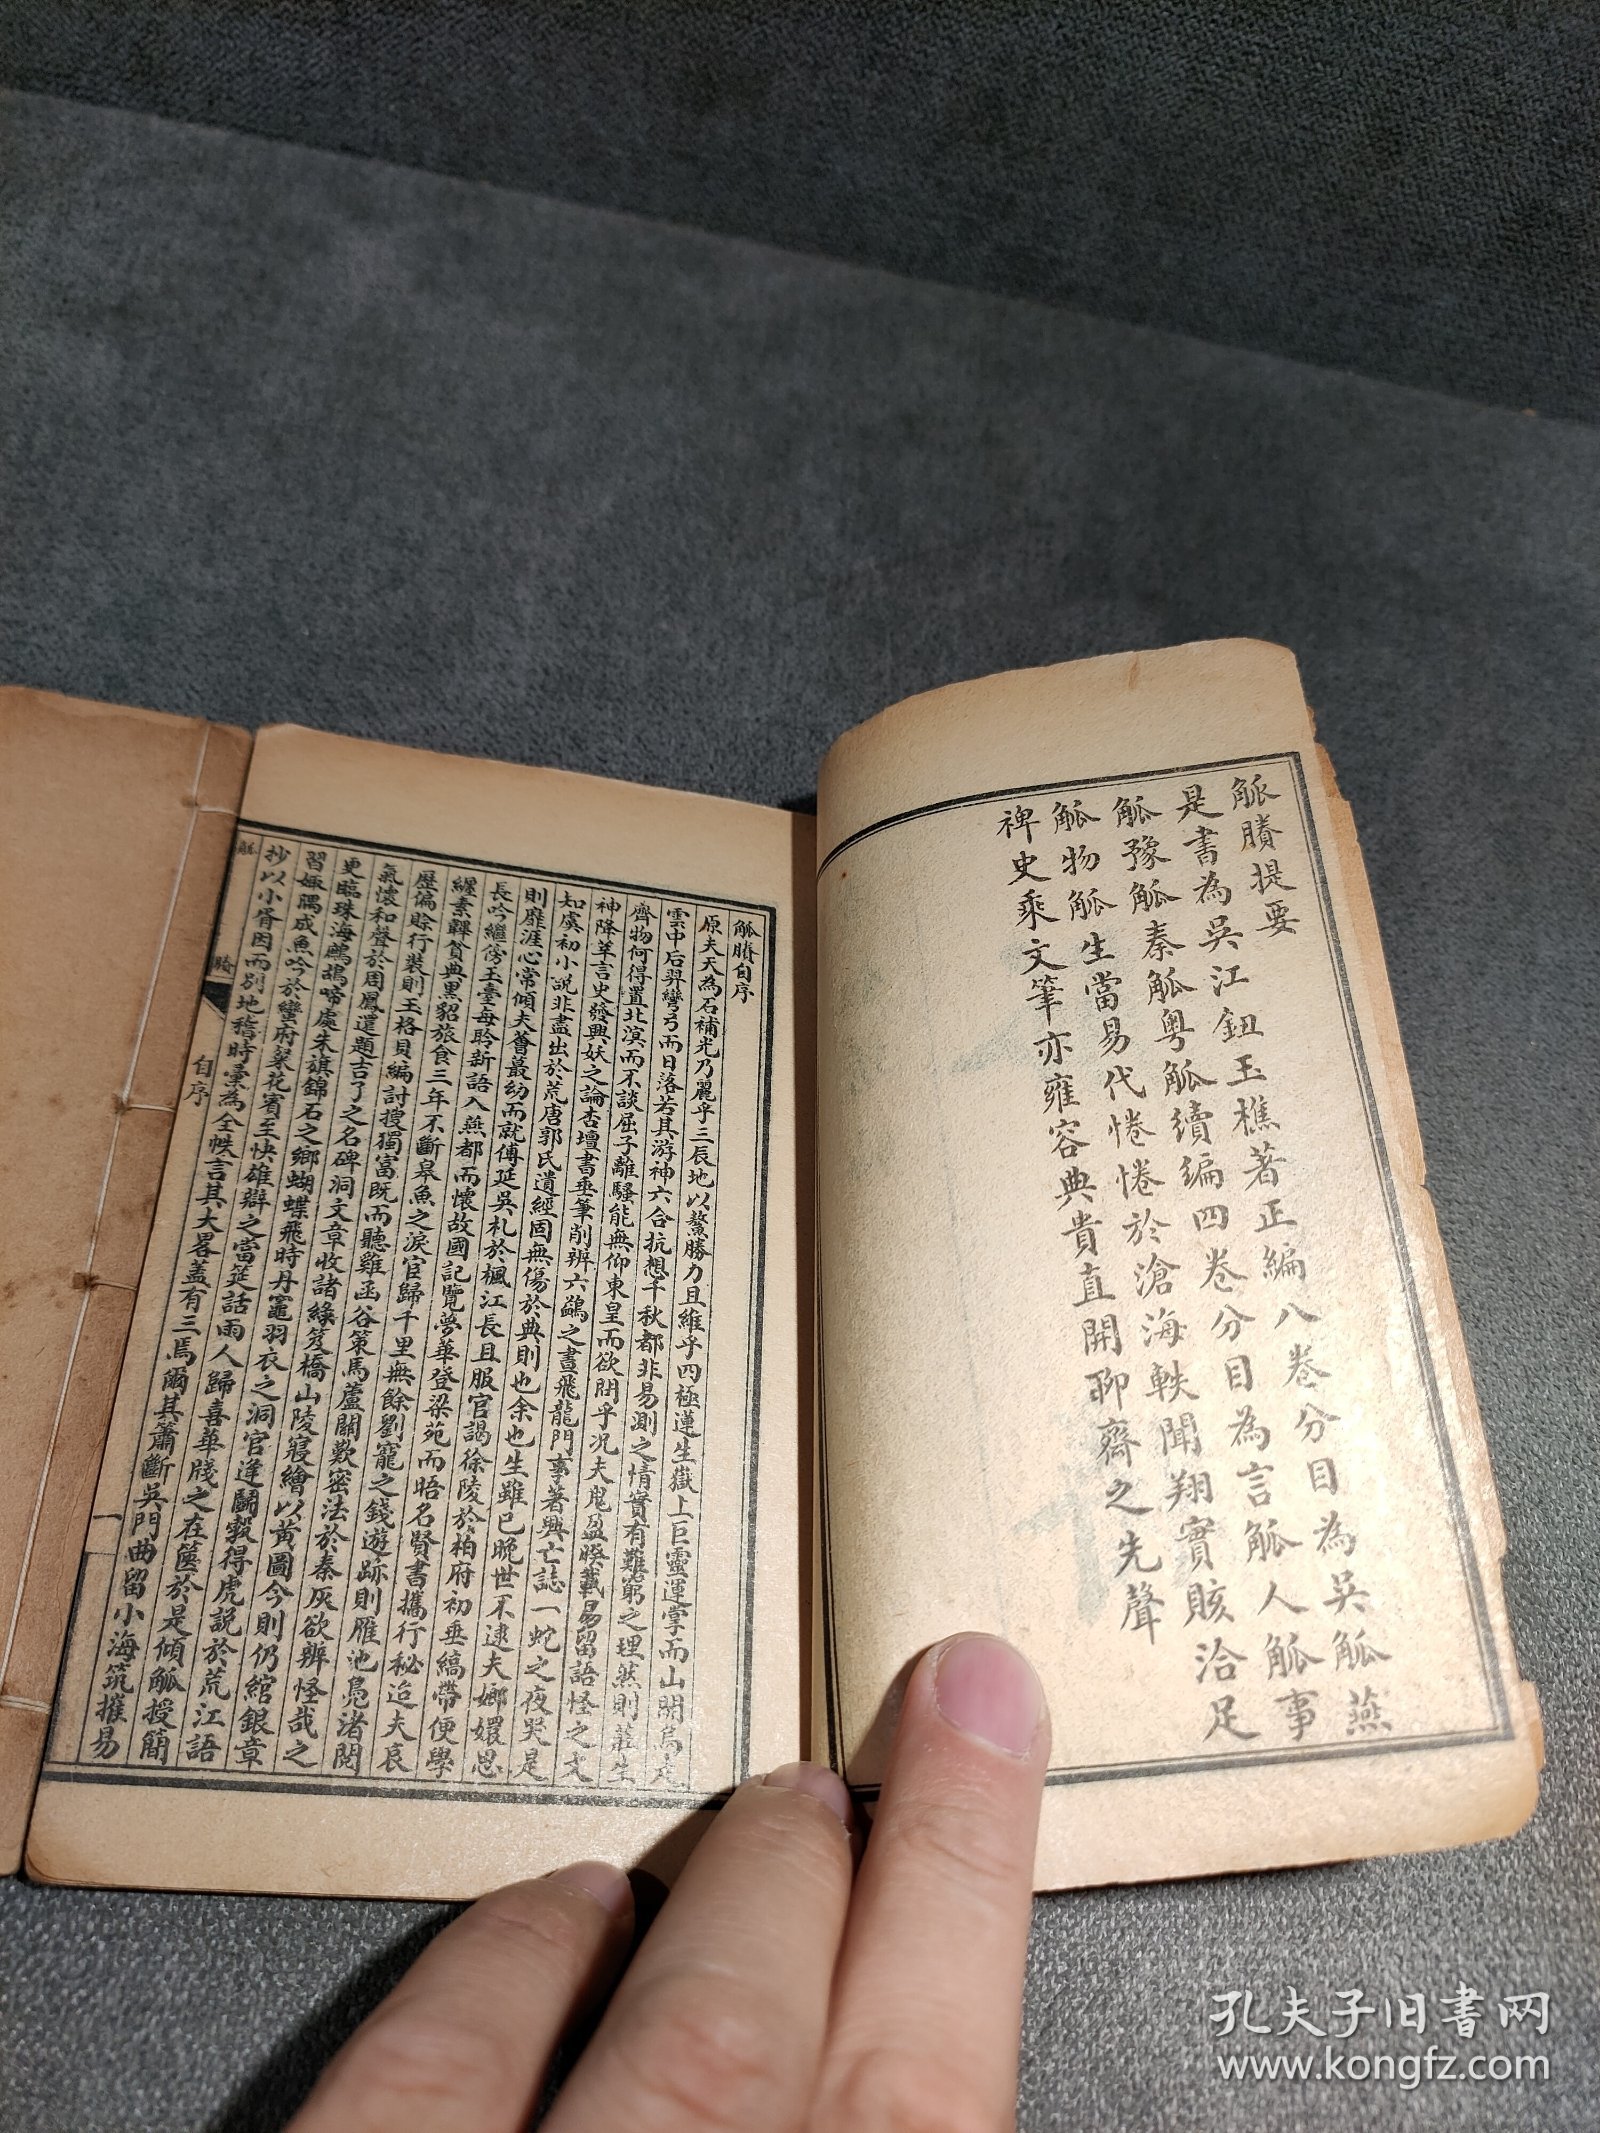 觚賸提要
是書為吳江鈕玉樵著正編八卷分目為吳觚燕
觚豫觚秦觚粵觚續編四卷分目為言觚人觚事
觚物觚生當易代惓惓於滄海軼聞翔實賅洽足
裨史乘文筆亦雍容典貴直開聊齋之先聲
觚賸自序
原夫天為石補光乃麗乎三辰地以鰲勝力且維乎四極蓮生嶽上巨靈運掌而山開烏走
雲中后羿彎弓而日落若其游神六合抗想千秋都非易測之情實有難窮之理然則莊生
齊物何得置北溟而不談屈子離騷能無仰東皇而欲問乎況夫鬼盈睽載易留語怪之文
神降莘言史發興妖之論杏壇書垂筆削辨六鷁之晝飛龍門事著興亡誌一蛇之夜哭是
知虞初小說非盡出於荒唐郭氏遺經固無傷於典則也余也生雖已晚世不逮夫嫏嬛思
則靡涯心常傾夫薈蕞幼而就傅延吳札於楓江長且服官謁徐陵於柏府初垂縞帶便學
長吟繼傍玉臺每聆新語入燕都而懷故國記覽夢華登梁苑而晤名賢書攜行秘迨夫哀
纏素韠貧典黑貂旅食三年不斷皋魚之淚宦歸千里無餘劉寵之錢遊跡則雁池鳧渚閱
歷偏賒行裝則玉格貝編討搜獨富既而聽雞函谷策馬蘆關歎密法於秦灰欲辨怪哉之
氣懷和聲於周鳳還題吉了之名碑洞文章收諸綠笈橋山陵寢繪以黃圖今則仍綰銀章
更臨珠海鷓鴣啼處朱旗錦石之鄉蝴蝶飛時丹竈羽衣之洞官逢鬬穀得虎說於荒江語
習娵隅成魚吟於蠻府琹花賓至快雄辯之當筵話雨人歸喜華牋之在篋於是傾觚授簡
抄以小胥因而別地稽時彙為全帙言其大畧蓋有三焉爾其簫斷吳門曲留小海筑摧易
觚賸
自序
一
孔夫子旧书网
www.kongfz.com